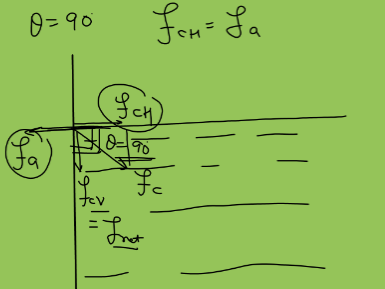 θ = 90
f_CH = f_a
f_CH
f_a
θ = 90
f_CV
f_C
= f_net